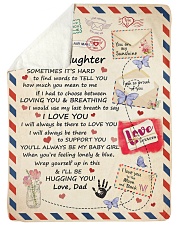 ughter
SOMETIMES IT'S HARD
to find words to TELL you
how much you mean to me
If I had to choose between
LOVING YOU & BREATHING
I would use my last breath to say
I LOVE YOU
I will always be there to LOVE YOU
I will always be there
to SUPPORT YOU
YOU'LL ALWAYS BE MY BABY GIRL
When you're feeling lonely & blue,
Wrap yourself up in this
& I'LL BE
HUGGING YOU!
Love, Dad
You are my
Sunshine
so proud of
you
Love
I love you
to the
& Back